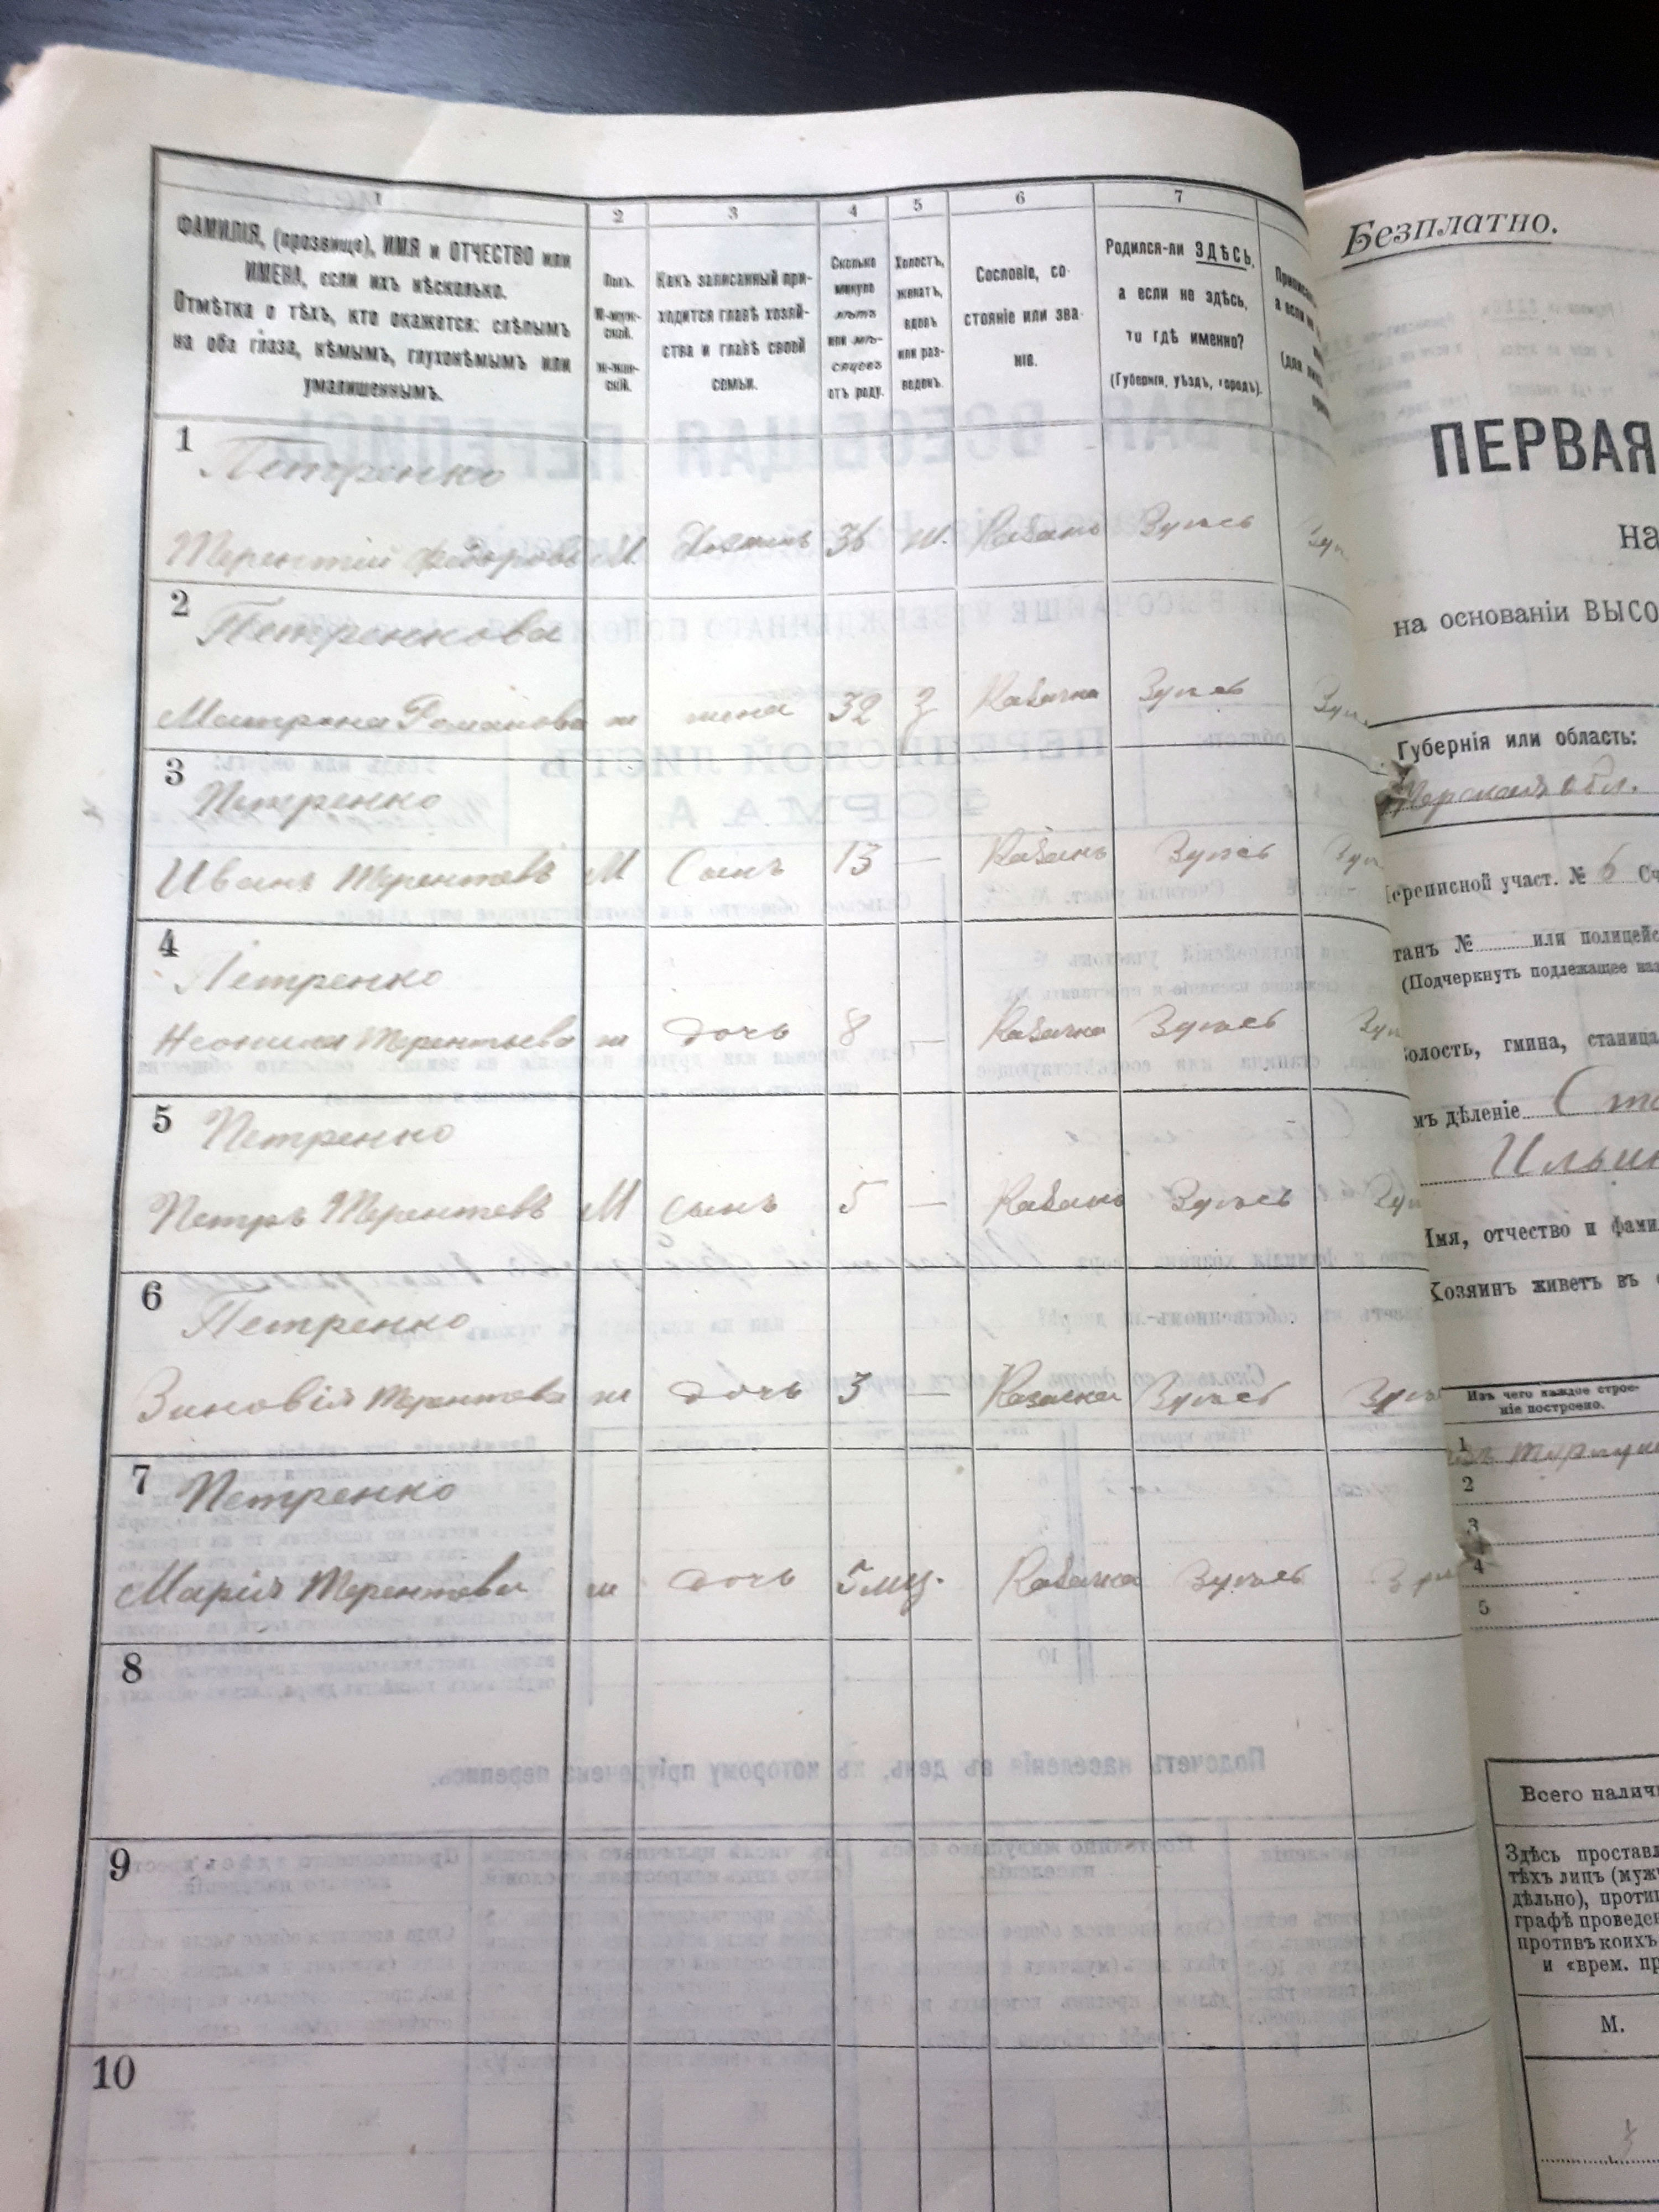 1
ФАМИЛІЯ, (прозвище), ИМЯ и ОТЧЕСТВО или
ИМЕНА, если ихъ нѣсколько.
Отмѣтка о тѣхъ, кто окажется: слѣпымъ
на оба глаза, нѣмымъ, глухонѣмымъ или
умалишеннымъ.
2
Полъ.
М-муж-
ской.
Ж-жен-
скій.
3
Какъ записанный при-
ходится главѣ хозяй-
ства и главѣ своей
семьи.
4
Сколько
минуло
лѣтъ
или мѣ-
сяцевъ
отъ роду.
5
Холостъ,
женатъ,
вдовъ
или раз-
веденъ.
6
Сословіе, со-
стояніе или зва-
ніе.
7
Родился-ли ЗДѢСЬ,
а если не здѣсь,
то гдѣ именно?
(Губернія, уѣздъ, городъ).
1
Петренко
Терентій Федоровъ М. Хозяинъ 36 ж. Казакъ Здѣсь
2
Петренкова
Матрена Романова ж жена 32 З Казачка Здѣсь
3
Петренко
Иванъ Терентьевъ М Сынъ 13 — Казакъ Здѣсь
4
Петренко
Неонила Терентьева ж дочь 8 — Казачка Здѣсь
5
Петренко
Петръ Терентьевъ М сынъ 5 — Казакъ Здѣсь
6
Петренко
Зиновія Терентьева ж дочь 3 — Казачка Здѣсь
7
Петренко
Марія Терентева ж дочь 5 мц. Казачка Здѣсь
8
9
10
Безплатно.
ПЕРВАЯ
на
на основаніи ВЫСО
Губернія или область:
Терская обл.
Переписной участ. № 6 Сч
танъ № или полицейс
(Подчеркнуть подлежащее наз
олость, гмина, станица
мъ дѣленіе Ста
Ильин
Имя, отчество и фами
Хозяинъ живетъ въ
Изъ чего каждое строе-
ніе построено.
1
2
3
4
5
Всего налич
Здѣсь проставл
тѣхъ лицъ (муж
дѣльно), проти
графѣ проведен
противъ коихъ
и «врем. пр
М.